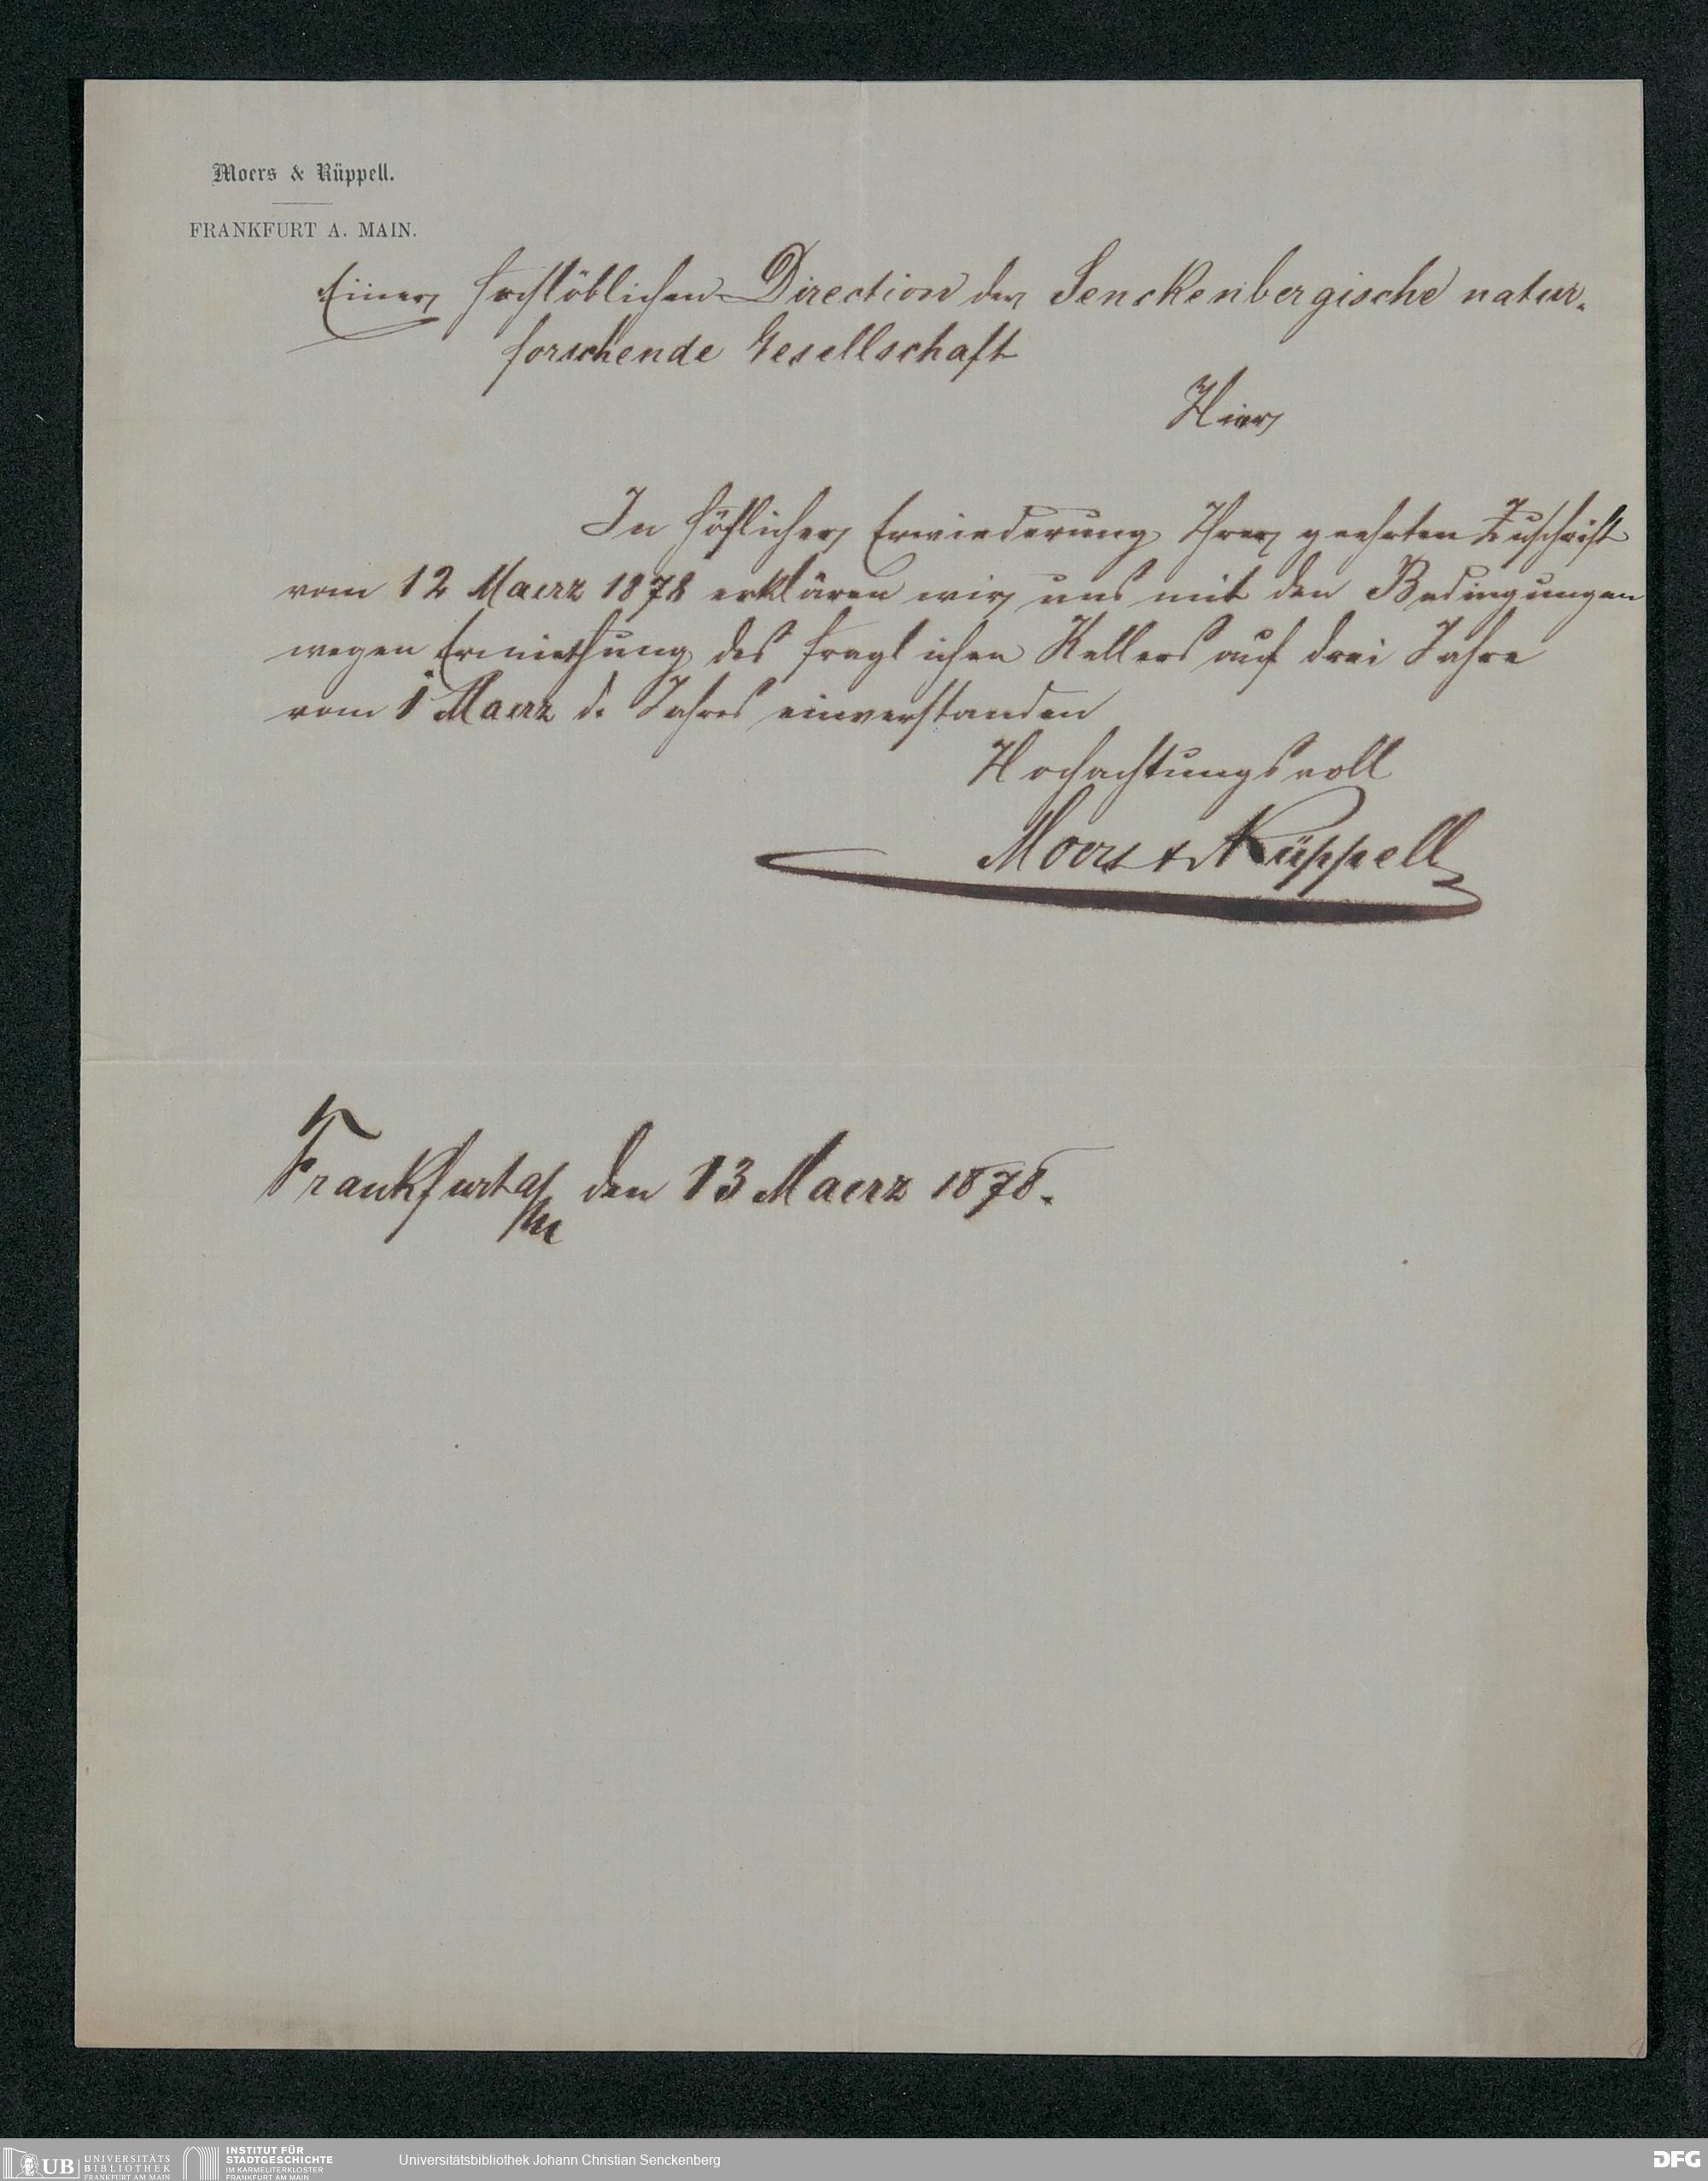 Moers & Rüppell.
FRANKFURT A. MAIN.
Einer hochlöblichen Direction der Senckenbergische natur-
forschende Gesellschaft
Hier
In höflicher Erwiederung Ihrer geehrten Zuschrift
vom 12 Maerz 1878 erklären wir uns mit den Bedingungen
wegen Ermiethung des fraglichen Kellers auf drei Jahre
vom 1 Maerz d. Jahres einverstanden
Hochachtungsvoll
Moers & Rüppell
Frankfurt a/M den 13 Maerz 1878.
UB UNIVERSITÄTS BIBLIOTHEK FRANKFURT AM MAIN
INSTITUT FÜR STADTGESCHICHTE IM KARMELITERKLOSTER FRANKFURT AM MAIN
Universitätsbibliothek Johann Christian Senckenberg
DFG